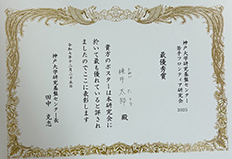 神戸大学研究基盤センター
若手フロンティア研究会
2025
最優秀賞
太郎 殿
貴方のポスターは本研究会に
於いて最も優れていると評され
ましたのでここに表彰します
神戸大学研究基盤センター長
田中